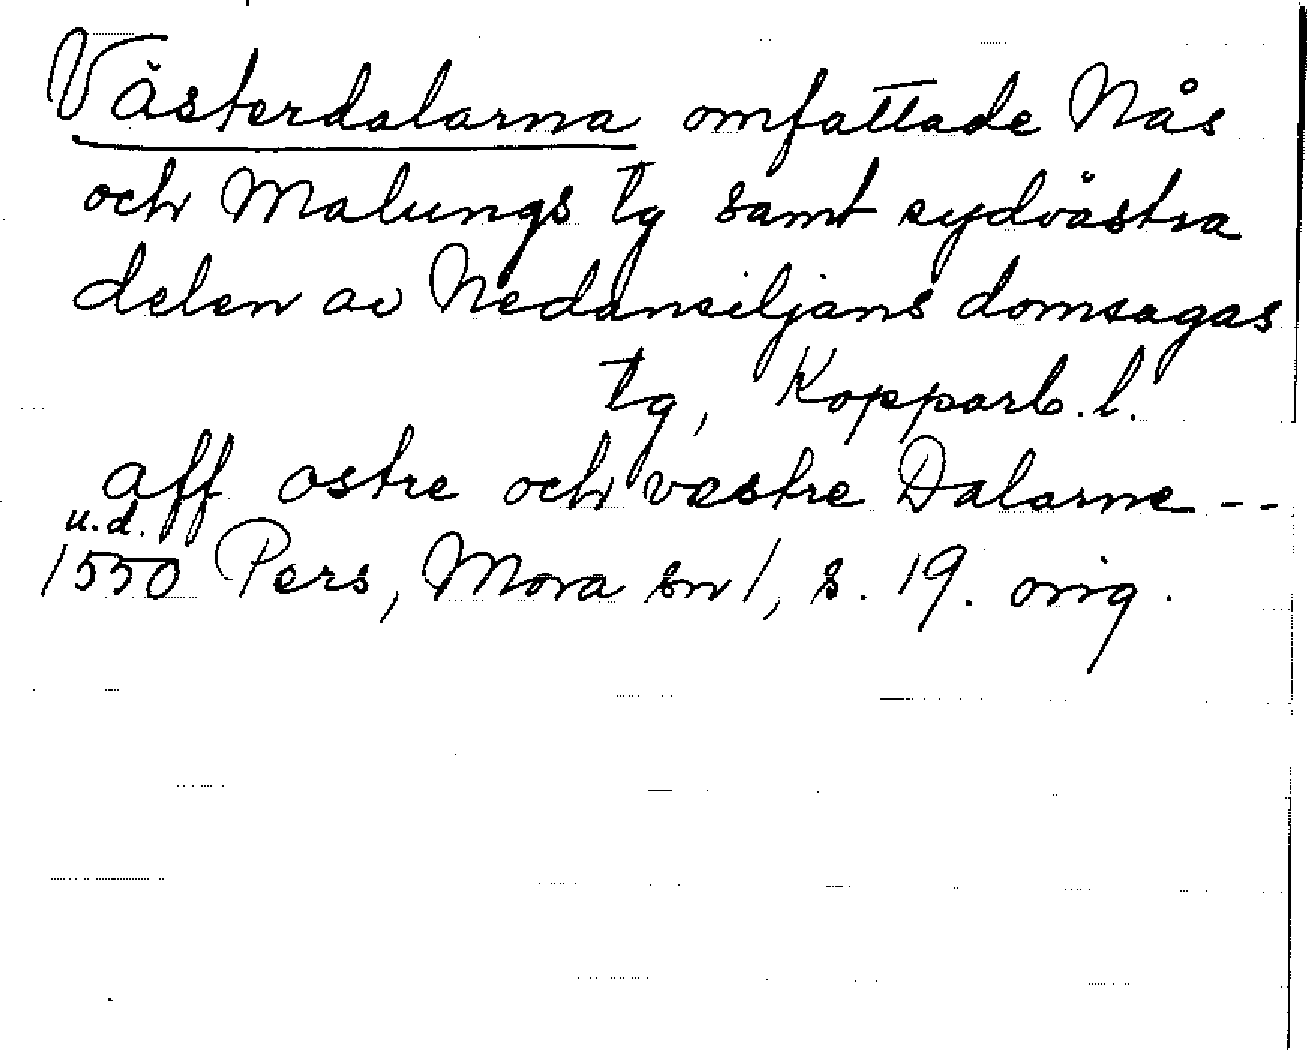 Västerdalarna omfattade Nås
och Malungs tg samt sydvästra
delen av Nedansiljans domsagas
tg, Kopparb. l.
aff ostre och vestre Dalarne --
u.d.
1550 Pers, Mora sn 1, s. 19. orig.